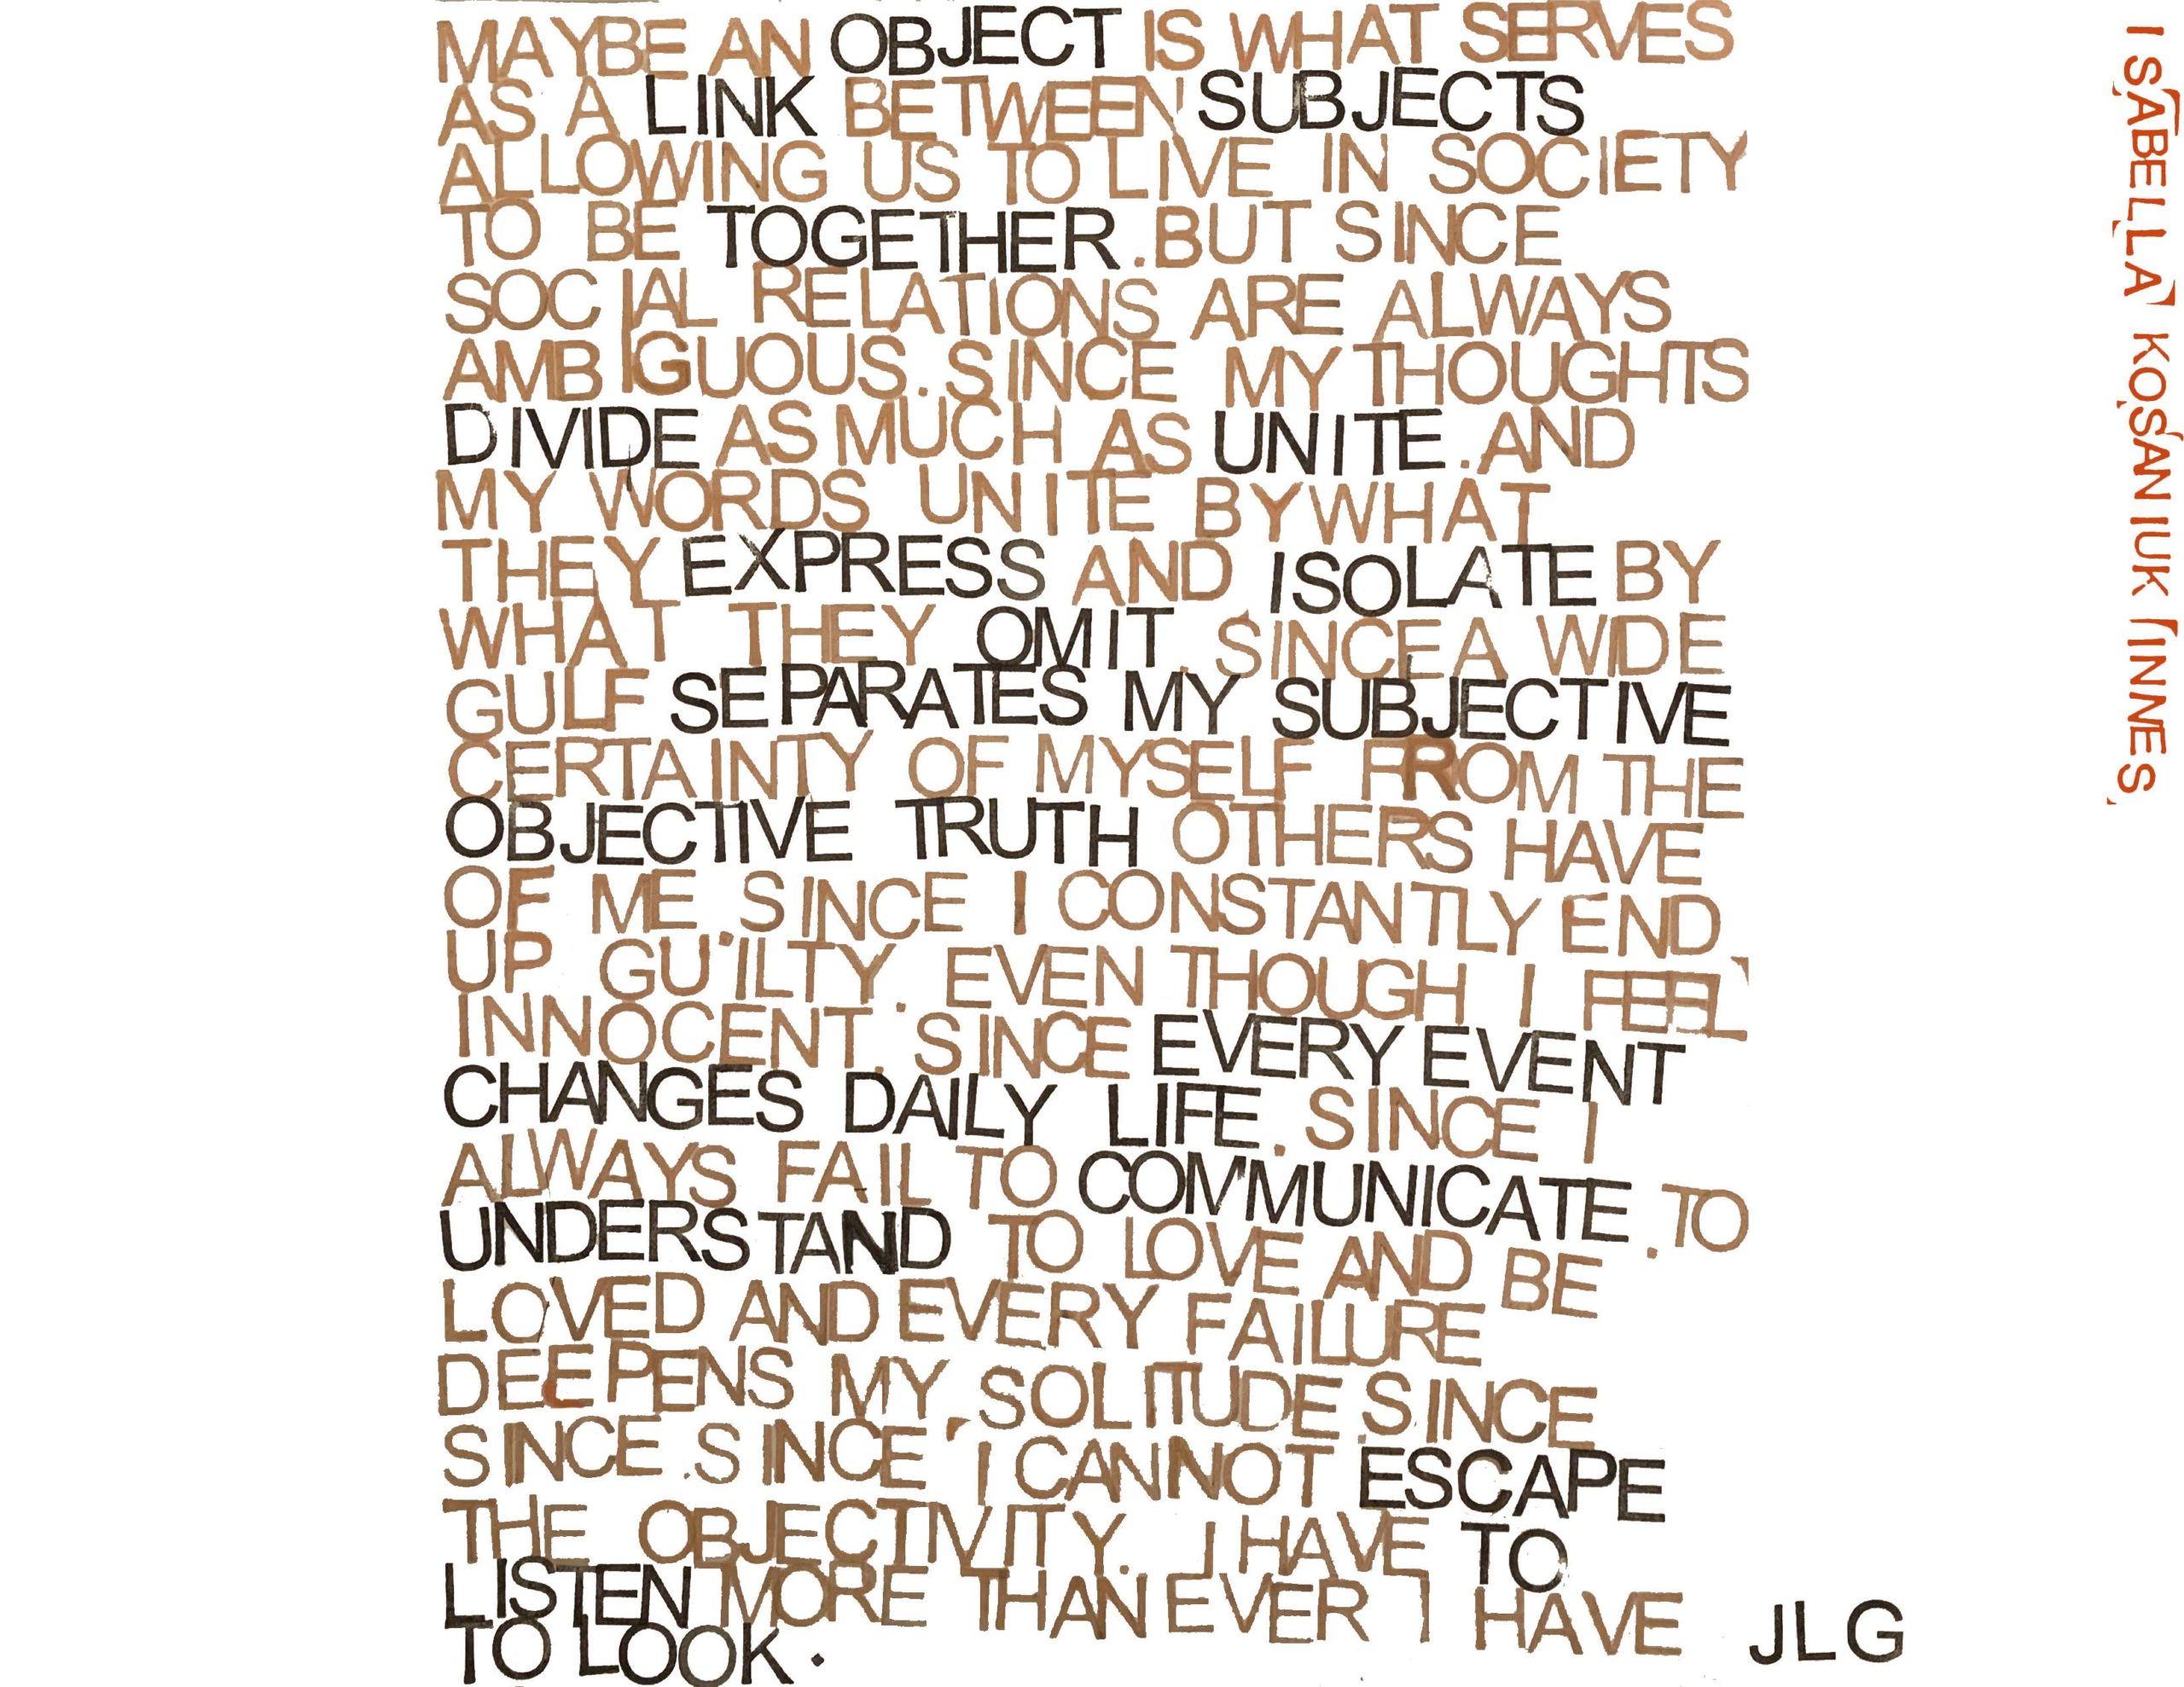 MAYBE AN OBJECT IS WHAT SERVES
AS A LINK BETWEEN SUBJECTS
ALLOWING US TO LIVE IN SOCIETY
TO BE TOGETHER. BUT SINCE
SOCIAL RELATIONS ARE ALWAYS
AMBIGUOUS. SINCE MY THOUGHTS
DIVIDE AS MUCH AS UNITE. AND
MY WORDS UNITE BY WHAT
THEY EXPRESS AND ISOLATE BY
WHAT THEY OMIT. SINCE A WIDE
GULF SEPARATES MY SUBJECTIVE
CERTAINTY OF MYSELF FROM THE
OBJECTIVE TRUTH OTHERS HAVE
OF ME. SINCE I CONSTANTLY END
UP GUILTY. EVEN THOUGH I FEEL
INNOCENT. SINCE EVERY EVENT
CHANGES DAILY LIFE. SINCE I
ALWAYS FAIL TO COMMUNICATE. TO
UNDERSTAND TO LOVE AND BE
LOVED AND EVERY FAILURE
DEEPENS MY SOLITUDE. SINCE
SINCE. SINCE I CANNOT ESCAPE
THE OBJECTIVITY. I HAVE TO
LISTEN MORE THAN EVER I HAVE
TO LOOK.
JLG
ISABELLA KOSANIUK INNES